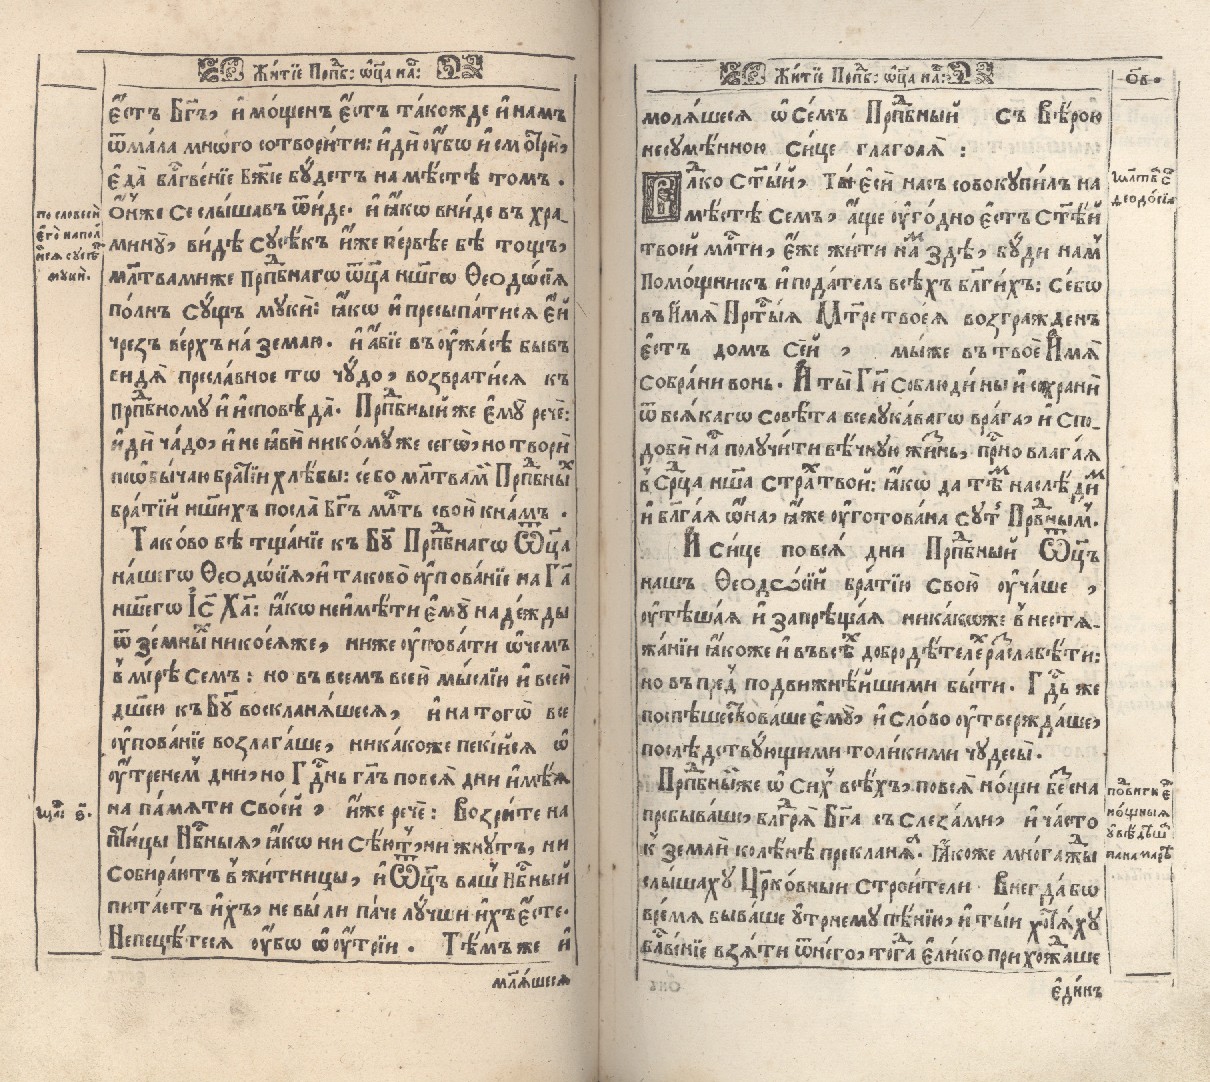 Жи́тїе Прпⷣб: ѡц҃а на́ⷲ:
є҆́стъ Бг҃ъ, и҆ мо́щенъ є҆́стъ та́кожде и҆ намъ
ѿма́ла мно́гѡ сотвори́ти: и҆ди̑ оу҆́бѡ и҆ смотри̑,
є҆да̀ блгⷭ҇ве́нїе Бж҃їе бу́детъ на мѣ́стѣ томъ .
Ѻ҆́нже се слы́шавъ ѿи́де. и҆ ꙗ҆́кѡ вни́де въ хра-
мину̀, ви́дѣ су́сѣкъ и҆́же пе́рвѣе бѣ̀ тощъ,
мл҃твамиже Прпⷣбнагѡ ѿц҃а нш҃гѡ Ѳеодѡ́сїѧ
по́лнъ су́щъ муки̑: ꙗ҆́кѡ и҆ пресыпа́тисѧ є҆́й
чрезъ ве́рхъ на́ землю . и҆ а҆́бїе въ оу҆́жасѣ бывъ
ви́дѧ пресла́вное то чу́до, возврати́сѧ къ
прпⷣбному и҆ и҆сповѣ́да . Прпⷣбный же є҆му̀ рече̑:
и҆ди̑ ча́до, и҆ не ꙗ҆ви̑ нико́му же сегѡ̀, но твори̑
поѡ҆бы́чаю бра́тїи хлѣ́бы: се́ бо мл҃твамⷨ Прпⷣбныⷯ
бра́тїй нши́хъ посла̀ Бг҃ъ млⷭ҇ть свою̀ к на́мъ .
Тако́во бѣ̀ тща́нїе къ Бг҃у Прпⷣбнагѡ Ѿц҃а
на́шегѡ Ѳеодѡ́сїѧ, и҆ таково̀ оу҆пова́нїе на Гⷭ҇а
нш҃егѡ Іс҃ Ха҃: ꙗ҆́кѡ неи҆мѣ́ти є҆му̀ наде́жды
ѿ земныⷯ никоеѧже, ниже оу҆пова́ти ѡ҆чемъ
в̾ мі́рѣ семъ: но въ всемъ всей мы́слїю и҆ всей
дш҃ею къ Бг҃у воскланѧ́шесѧ, и҆ на того̀ все
оу҆пова́нїе возлага́ше, ника́коже пекі́йсѧ ѡ҆
оу҆́тренемⷨ дни, но Гⷭ҇днь гл҃ъ повсѧ̀ дни и҆мѣ́ѧ
на па́мѧти свое́й, и҆́же рече̑: Воззри́те на
Пти́цы Нбⷭ҇ныѧ, ꙗ҆́кѡ ни сѣ́ютⷮ, ни жну́тъ, ни
собира́ютъ в̾ жи́тницы, и҆ Ѿц҃ъ вашⷲ Нбⷭ҇ный
пита́етъ и҆́хъ, не вы́ ли па́че лу́чши и҆́хъ є҆сте.
Непецѣ́тесѧ оу҆́бѡ ѡ҆ оу҆́трїи . Тѣ́мъ же и҆
млⷧѧ́шесѧ
по словесѝ
є҆гѡ̀ напол
ни́сѧ сусѣⷦ
мукѝ.
мⷴа: ѕ҃.
Жи́тїе Прпⷣб: ѡц҃а на́ⷲ:
о҃в.
молѧ́шесѧ ѡ҆ семъ Прпⷣбный съ вѣ́рою
несумѣ́нною си́це глаго́лѧ :
Влⷣко ст҃ы́й, Ты̀ є҆сѝ насъ совокупи́лъ на
мѣ́стѣ семъ, а҆́ще оу҆го́дно є҆́стъ ст҃ѣ́й
твое́й млⷭ҇ти, є҆́же жи́ти на́мⷨ здѣ, бу́ди намⷨ
помо́щникъ и҆ пода́тель всѣ́хъ блг҃и́хъ: се́ бѡ
въ И҆́мѧ Прⷭ҇ты́ѧ Мт҃ре твоеѧ возгражденъ
є҆́стъ домъ се́й, мы́же въ твоѐ И҆́мѧ̀
собра́ни вонь. И҆ ты̀ Гⷭ҇и соблюди́ ны и҆ сохрани̑
ѿ всѧ́кагѡ совѣ́та вселука́вагѡ врага̀, и҆ спо-
доби̑ наⷭ҇ получи́ти вѣ́чную жи́знь, при́сно влага́ѧ
в̾ срⷣца нш҃а страⷯ твой: ꙗ҆́кѡ да тѣⷨ наслѣ́димⷨ
и҆ блг҃а́ѧ ѡ҆́на, ꙗ҆́же оу҆гото́вана су́тⷮ Првⷣнымⷨ.
И҆ си́це повсѧ̀ дни Прпⷣбный Ѿц҃ъ
нашъ Ѳеодѡ́сїй бра́тїю свою̀ оу҆ча́ше,
оу҆тѣша́ѧ и҆ запреща́ѧ ника́коже в̾ нестѧ-
жа́нїи ꙗ҆́коже и҆ въ всѣⷯ добродѣ́телеⷯ разслабѣ́ти:
но въ преⷣ подвижнѣ́йшими бы́ти. Гⷭ҇дь же
поспѣшествова́ше є҆му̀, и҆ сло́во оу҆твержда́ше,
послѣ́дствующими толи́кими чудесы̀.
Прпⷣбныйже ѡ҆ сиⷯ всѣ́хъ, повсѧ̀ но́щи бе́зсна
пребыва́ше, блг҃рѧ̀ Бг҃а съ слеза́ми, и҆ ча́сто
к̾ землѝ колѣ́нѣ прекланѧ́ѧ. Ꙗ҆́коже многа́жды
слы́шаху Црⷦ҇о́вныи строи́тели. Внегда́ бѡ
вре́мѧ быва́ше оу҆́трнему пѣ́нїю, и҆ ты́и хотѧ́ху
блгⷭ҇ве́нїе взѧ́ти ѿнего̀, тогда̀ є҆ли́ко прихожда́ше
є҆ди́нъ
Мл҃тва ст҃
Ѳеодо́сїѧ